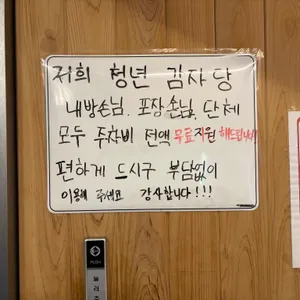 저희 청년 감자탕
내방손님. 포장손님. 단체
모두 주차비 전액 무료지원 해드립니다!
편하게 드시구 부담없이
이용해 주세요 감사합니다!!!
PUSH
눌러